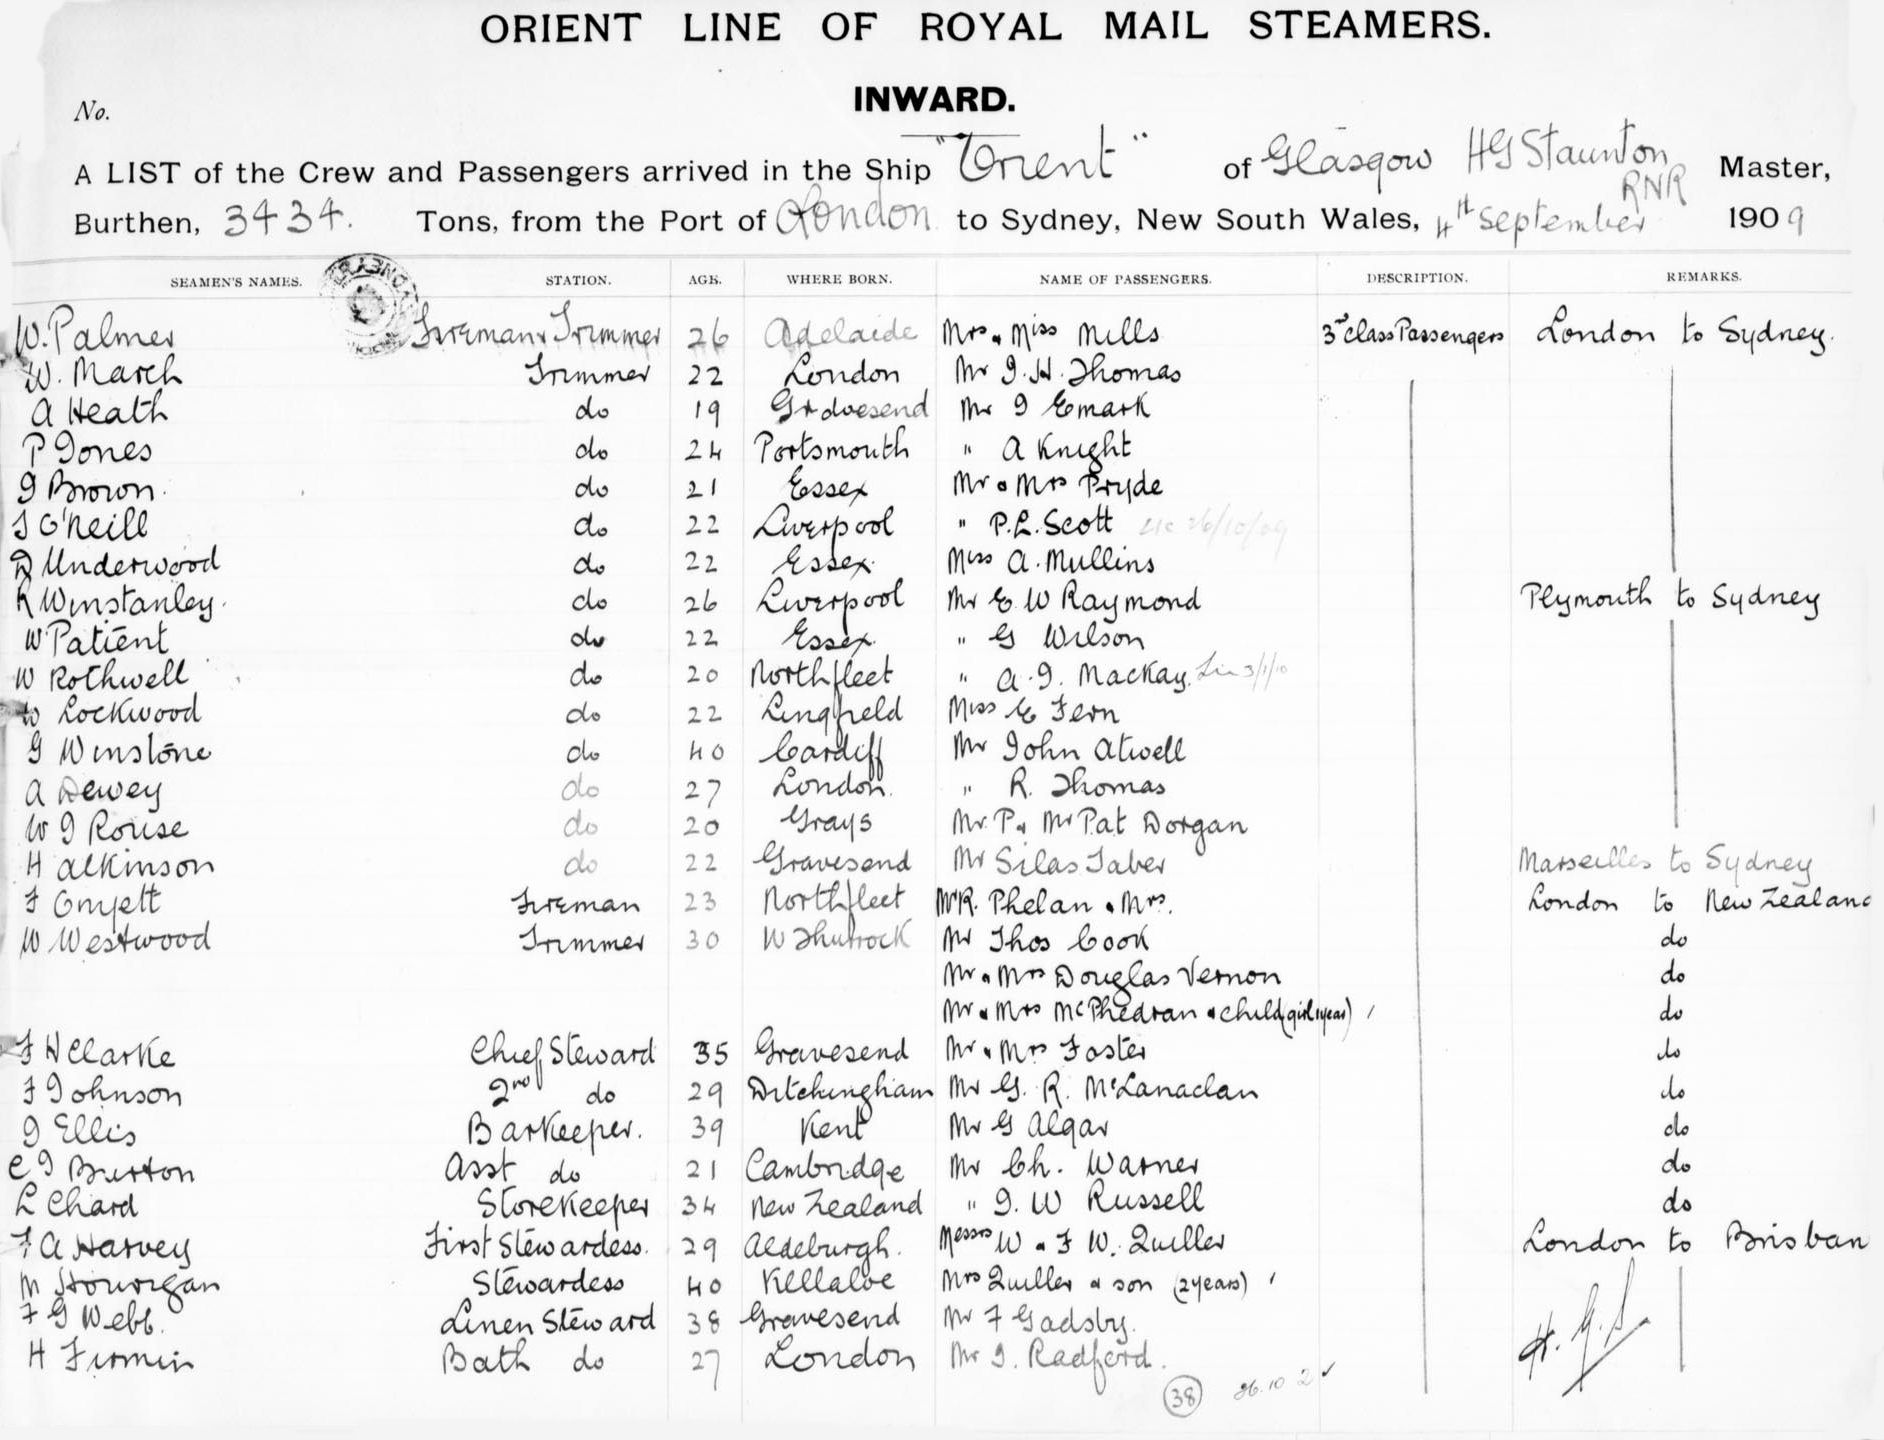 ORIENT LINE OF ROYAL MAIL STEAMERS.
No.
INWARD.
A LIST of the Crew and Passengers arrived in the Ship "Orient" of Glasgow HG Staunton RNR Master,
Burthen, 3434. Tons, from the Port of London to Sydney, New South Wales, 4th September 1909
SEAMEN'S NAMES. STATION. AGE. WHERE BORN. NAME OF PASSENGERS. DESCRIPTION. REMARKS.
W. Palmer Fireman & Trimmer 26 Adelaide Mrs & Miss Mills 3rd Class Passengers London to Sydney.
W. March Trimmer 22 London Mr J. H. Thomas
A Heath do 19 Gravesend Mr J Emark
P Jones do 24 Portsmouth " A Knight
J Brown. do 21 Essex Mr & Mrs Pryde
J O'Neill do 22 Liverpool " P.L. Scott 26/10/09
D Underwood do 22 Essex Miss A. Mullins
R Winstanley. do 26 Liverpool Mr E W Raymond Plymouth to Sydney
W Patient do 22 Essex " G Wilson
W Rothwell do 20 Northfleet " A. J. Mackay. 3/1/10
W Lockwood do 22 Lingfield Miss E Fern
G Winstone do 40 Cardiff Mr John Atwell
A Dewey do 27 London " R. Thomas
W J Rouse do 20 Grays Mr P. & Mr Pat Dorgan
H Atkinson do 22 Gravesend Mr Silas Taber Marseilles to Sydney
F Fireman 23 Northfleet Mr R. Phelan & Mrs. London to New Zealand
W Westwood Trimmer 30 W Thurrock Mr Thos Cook do
Mr & Mrs Douglas Vernon do
Mr & Mrs McPhedran & child (girl 1 year) do
F H Clarke Chief Steward 35 Gravesend Mr & Mrs Foster do
F Johnson 2nd do 29 Ditchingham Mr G. R. McLanaclan do
J Ellis Barkeeper. 39 Kent Mr G Algar do
C J Burton Asst do 21 Cambridge Mr Ch. Warner do
L Chard Storekeeper 34 New Zealand " J. W Russell do
F A Harvey First Stewardess. 29 Aldeburgh. Messrs W & F W. Quiller London to Brisban
M Hourigan Stewardess 40 Killaloe Mrs Quiller & son (2 years)
F G Webb. Linen Steward 38 Gravesend Mr F Gadsby.
H Firmin Bath do 27 London Mr J. Radford. H. G. S.
38 26.10 2